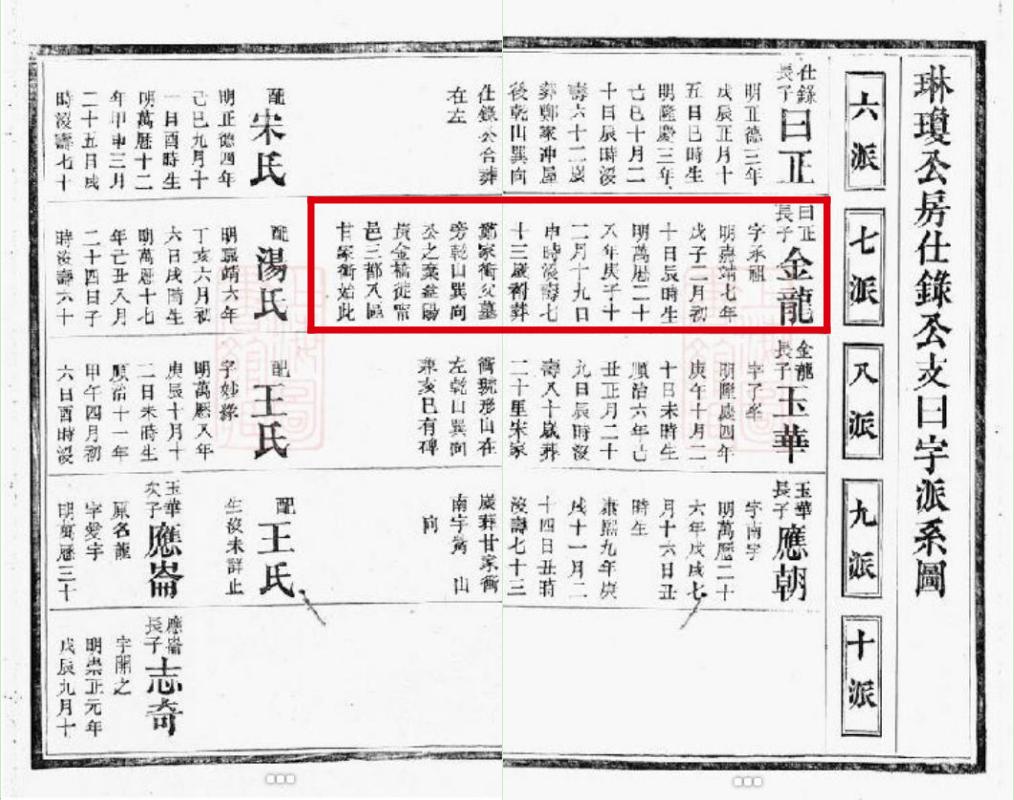 琳瓊公房仕錄公支曰字派系圖
六派
七派
八派
九派
十派
仕錄
長子
曰正
明正德三年
戊辰正月十
五日巳時生
明隆慶三年
己巳十月二
十日辰時没
壽六十二歲
葬鄭家冲屋
後乾山巽向
仕錄公合葬
在左
配
宋氏
明正德四年
己巳九月十
一日酉時生
明萬曆十二
年甲申三月
二十五日戌
時没壽七十
曰正
長子
金龍
字承祖
明嘉靖七年
戊子二月初
十日辰時生
明萬曆二十
八年庚子十
二月十九日
申時没壽七
十三歲祔葬
鄭家衝父墓
旁乾山巽向
公之業益陽
黃金橋徙甯
邑三都八區
甘家衝始此
配
湯氏
明嘉靖六年
丁亥六月初
六日戌時生
明萬曆十七
年己丑八月
二十四日子
時没壽六十
金龍
長子
玉華
字子
明隆慶四年
庚午十月二
十日未時生
順治六年己
丑正月二十
九日辰時没
壽八十歲葬
二十里宋家
衝琥形山在
左乾山巽向
兼亥巳有碑
配
王氏
字妙
明萬曆八年
庚辰十月十
二日未時生
順治十一年
甲午四月初
六日酉時没
玉華
長子
應朝
字南宇
明萬曆二十
六年戊戌七
月十六日丑
時生
康熙九年庚
戌十一月二
十四日丑時
没壽七十三
歲葬甘家衝
南字 山
向
配
王氏
生没未詳止
玉華
次子
應崙
原名龍
字愛宇
明萬曆三十
應崙
長子
志奇
字開之
明崇正元年
戊辰九月十